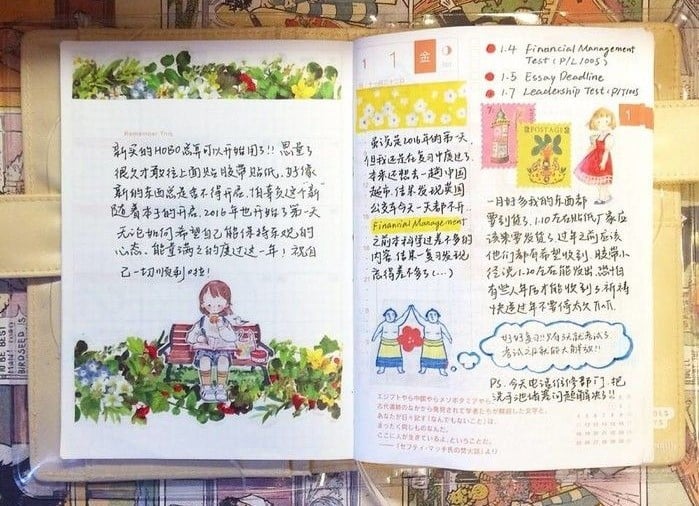 Remember This
新买的HOBO总算可以开始用了!! 思量了
很久才敢往上面贴胶带贴纸，好像
新的东西总是舍不得开启，怕辜负这个"新"
随着本子的开启，2016年也开始了第一天
无论如何希望自己能保持乐观的
心态，能量满满的度过这一年！祝自
己一切顺利啦！
1 1 金
虽说是2016年的第一天
但我还是在复习中度过了
本来还想去一趟中国
超市，结果发现英国
公交车今天一天都不开
Financial Management
之前本科学过差不多的
内容，结果一复习发现
忘得差不多了(...)
1.4 Financial Management
Test (P/L1005)
1.5 Essay Deadline
1.7 Leadership Test
POSTAGE
1
一月好多我的东西都
要到货了，1.10左右贴纸厂家应
该来要发货了，过年之前应该
他们都有希望收到，胶带小
径说1.20左右能发出，恐怕
有些人年后才能收到了，祈祷
快递过年不要停太久
好好复习!! 只有3天就考试了
考试之后就能大解放!!
PS. 今天电话维修部门，把
洗手池堵塞问题解决了!!
エジプトやら中国やらメソポタミアやら
古代遺跡のなかから発見されて学者たちが解読した文字と、
あなたが日々記す「なんでもないこと」は、
まったく同じものなんだ。
ここに人が生きているよ、ということだ。
——『セフティ・マッチ氏の焚火話』より
BIRDSEED IS